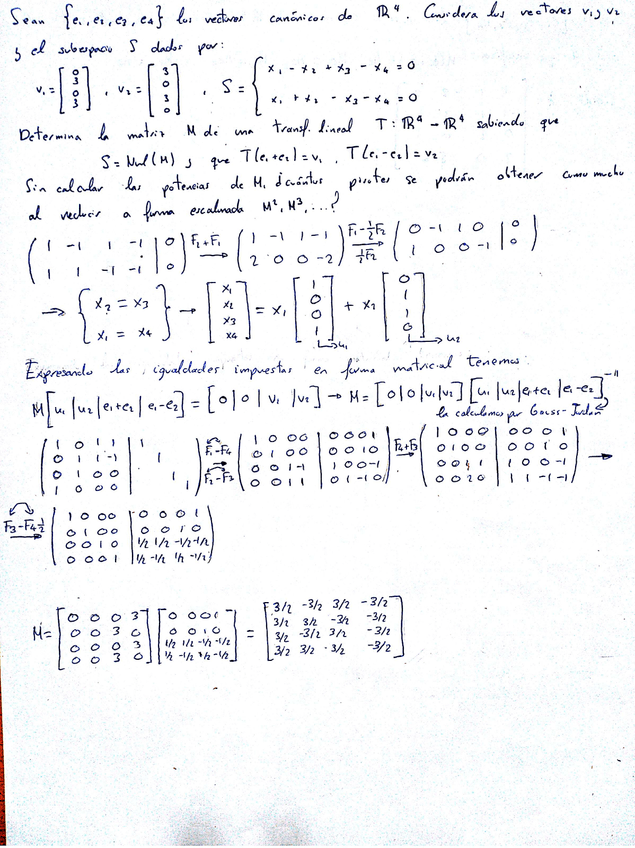 Sean {e₁, e₂, e₃, e₄} los vectores canónicos de ℝ⁴. Considera los vectores v₁ y v₂
y el subespacio S dados por:
v₁ = [0 3 0 3], v₂ = [3 0 3 0], S = { x₁ - x₂ + x₃ - x₄ = 0
x₁ + x₂ - x₃ - x₄ = 0
Determina la matriz M de una transf. lineal T: ℝ⁴ → ℝ⁴ sabiendo que
S = Nul(M) y que T(e₁+e₂) = v₁, T(e₁-e₂) = v₂
Sin calcular las potencias de M, ¿cuántos pivotes se podrán obtener como mucho
al reducir a forma escalonada M², M³, ...?
(1 -1 1 -1 | 0; 1 1 -1 -1 | 0) F₂+F₁ → (1 -1 1 -1; 2 0 0 -2) F₁-½F₂ ½F₂ → (0 -1 1 0 | 0; 1 0 0 -1 | 0)
→ { x₂ = x₃; x₁ = x₄ } → [x₁ x₂ x₃ x₄] = x₁ [1 0 0 1] + x₂ [0 1 1 0]
u₁ u₂
Expresando las igualdades impuestas en forma matricial tenemos:
M[u₁|u₂|e₁+e₂|e₁-e₂] = [0|0|v₁|v₂] → M = [0|0|v₁|v₂] [u₁|u₂|e₁+e₂|e₁-e₂]⁻¹
la calculamos por Gauss-Jordan
(1 0 1 1 | 1; 0 1 1 -1 | 1; 0 1 0 0 | 1; 1 0 0 0 | 1) F₁-F₄ F₂-F₃ → (1 0 0 0 | 0 0 0 1; 0 1 0 0 | 0 0 1 0; 0 0 1 -1 | 1 0 0 -1; 0 0 1 1 | 0 1 -1 0) F₄+F₃ → (1 0 0 0 | 0 0 0 1; 0 1 0 0 | 0 0 1 0; 0 0 1 1 | 1 0 0 -1; 0 0 2 0 | 1 1 -1 -1) →
F₃-F₄½ → (1 0 0 0 | 0 0 0 1; 0 1 0 0 | 0 0 1 0; 0 0 1 0 | 1/2 1/2 -1/2 -1/2; 0 0 0 1 | 1/2 -1/2 1/2 -1/2)
M = [0 0 0 3; 0 0 3 0; 0 0 0 3; 0 0 3 0] [0 0 0 1; 0 0 1 0; 1/2 1/2 -1/2 -1/2; 1/2 -1/2 1/2 -1/2] = [3/2 -3/2 3/2 -3/2; 3/2 3/2 -3/2 -3/2; 3/2 -3/2 3/2 -3/2; 3/2 3/2 -3/2 -3/2]